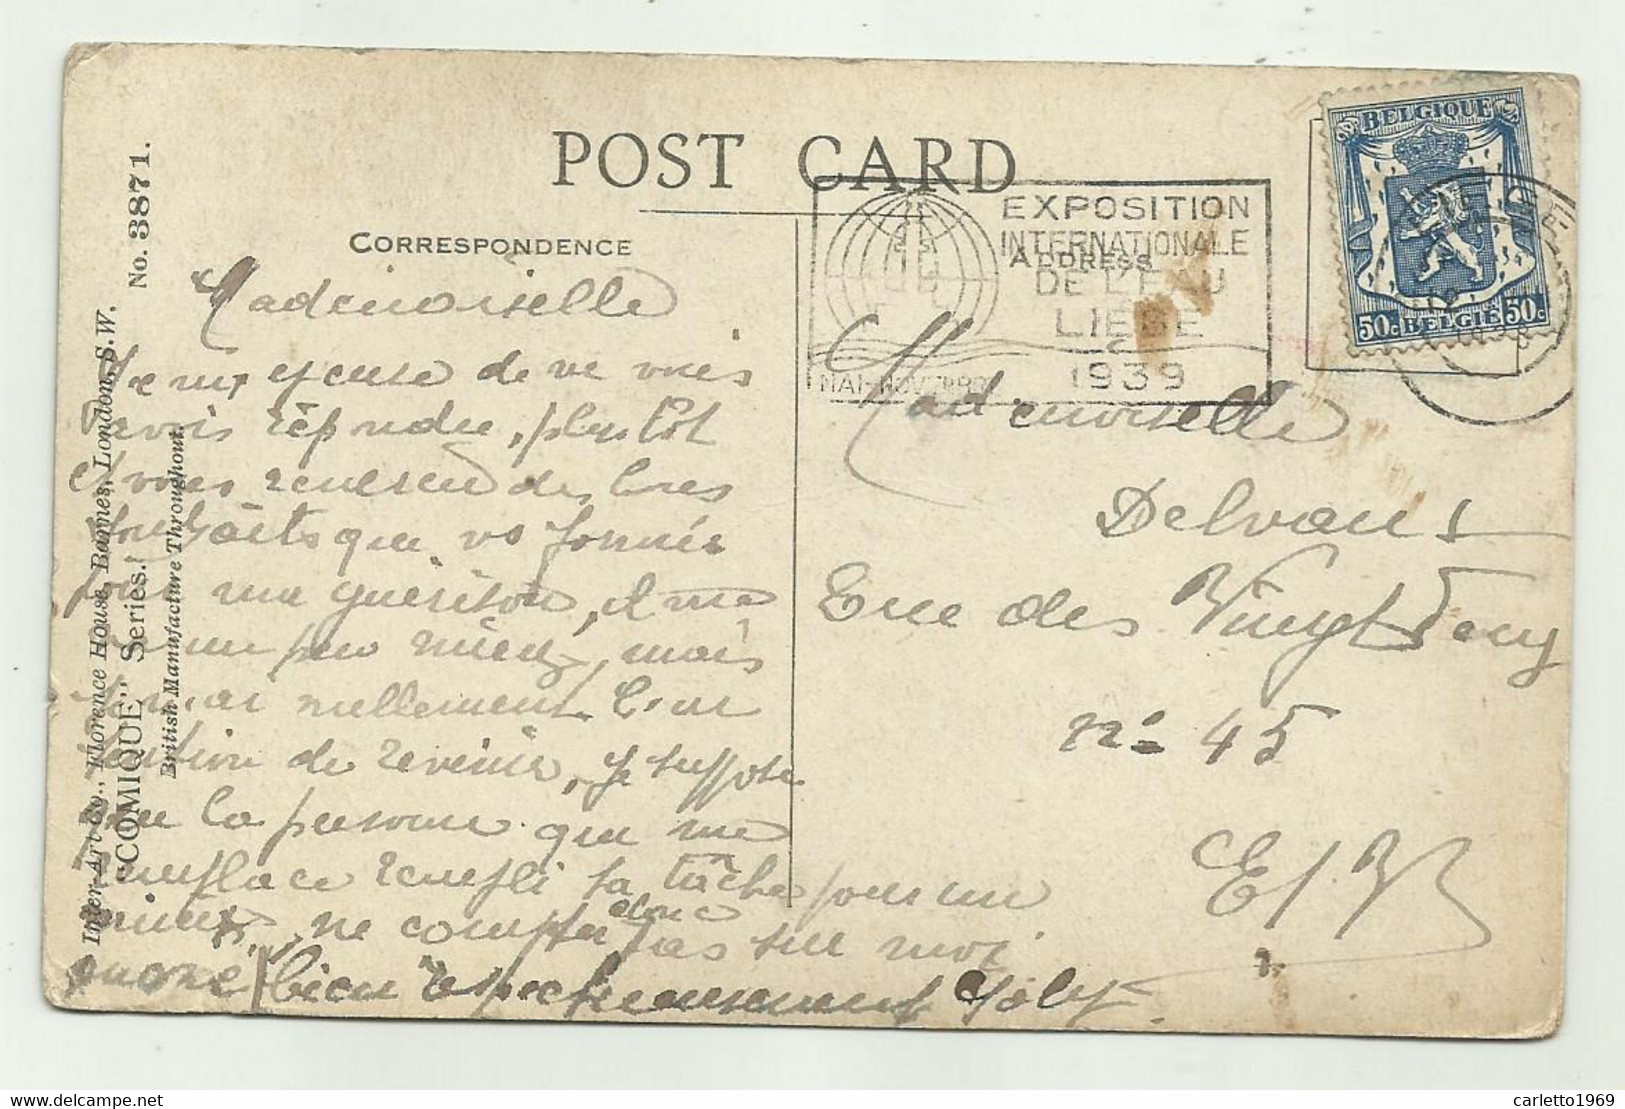 POST CARD
CORRESPONDENCE
ADDRESS
No. 3871.
Inter-Art Co., Florence House, Barnes, London, S.W.
"COMIQUE" Series.
British Manufacture Throughout.
BELGIQUE
50c BELGIË 50c
EXPOSITION
INTERNATIONALE
DE L'EAU
LIEGE
1939
MAI-NOV
Mademoiselle
Je m' excuse de ne vous
avoir répondu plus tôt
et vous remercie des bons
souhaits que vs formés
pour ma guérison, il me
un peu mieux, mais
nullement l'in
tention de revenir, je suppose
que la personne qui me
remplace rempli sa tâche pour un
mieux, ne compter donc pas sur moi
bien respectueusement Joly
Mademoiselle
Delvaux
Rue des Vingt Deux
n° 45
E/V
carletto1969